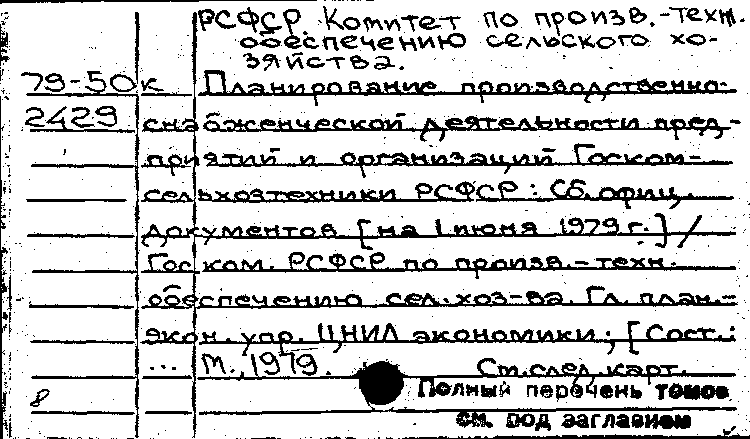 РСФСР. Комитет по произв.-техн.
обеспечению сельского хо-
зяйства.
79-50к Планирование производственно-
2429 снабженческой деятельности пред-
приятий и организаций Госком-
сельхозтехники РСФСР: Сб. офиц.
документов [на 1 июня 1979 г.] /
Гос. ком. РСФСР по произв.-техн.
обеспечению сел. хоз-ва. Гл. план.-
экон. упр. ЦНИЛ экономики; [Сост.:
... М., 1979. См. след. карт.
Полный перечень томов
8
см. под заглавием